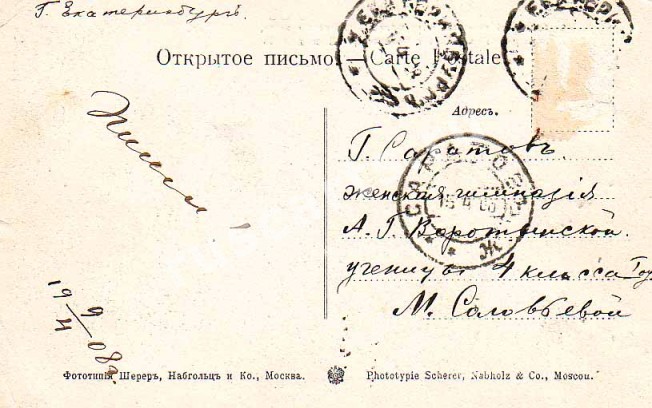 Г. Екатеринбургъ.
Открытое письмо. Carte Postale
Адресъ.
Г. Саратовъ.
женская гимназія
А. Г. Воротынской.
ученицы 4 класса
М. Соловьевой
Пиши!
19 9/II 08 г.
САРАТОВЪ
Фототипія Шереръ, Набгольцъ и Ко., Москва.
Phototypie Scherer, Nabholz & Co., Moscou.